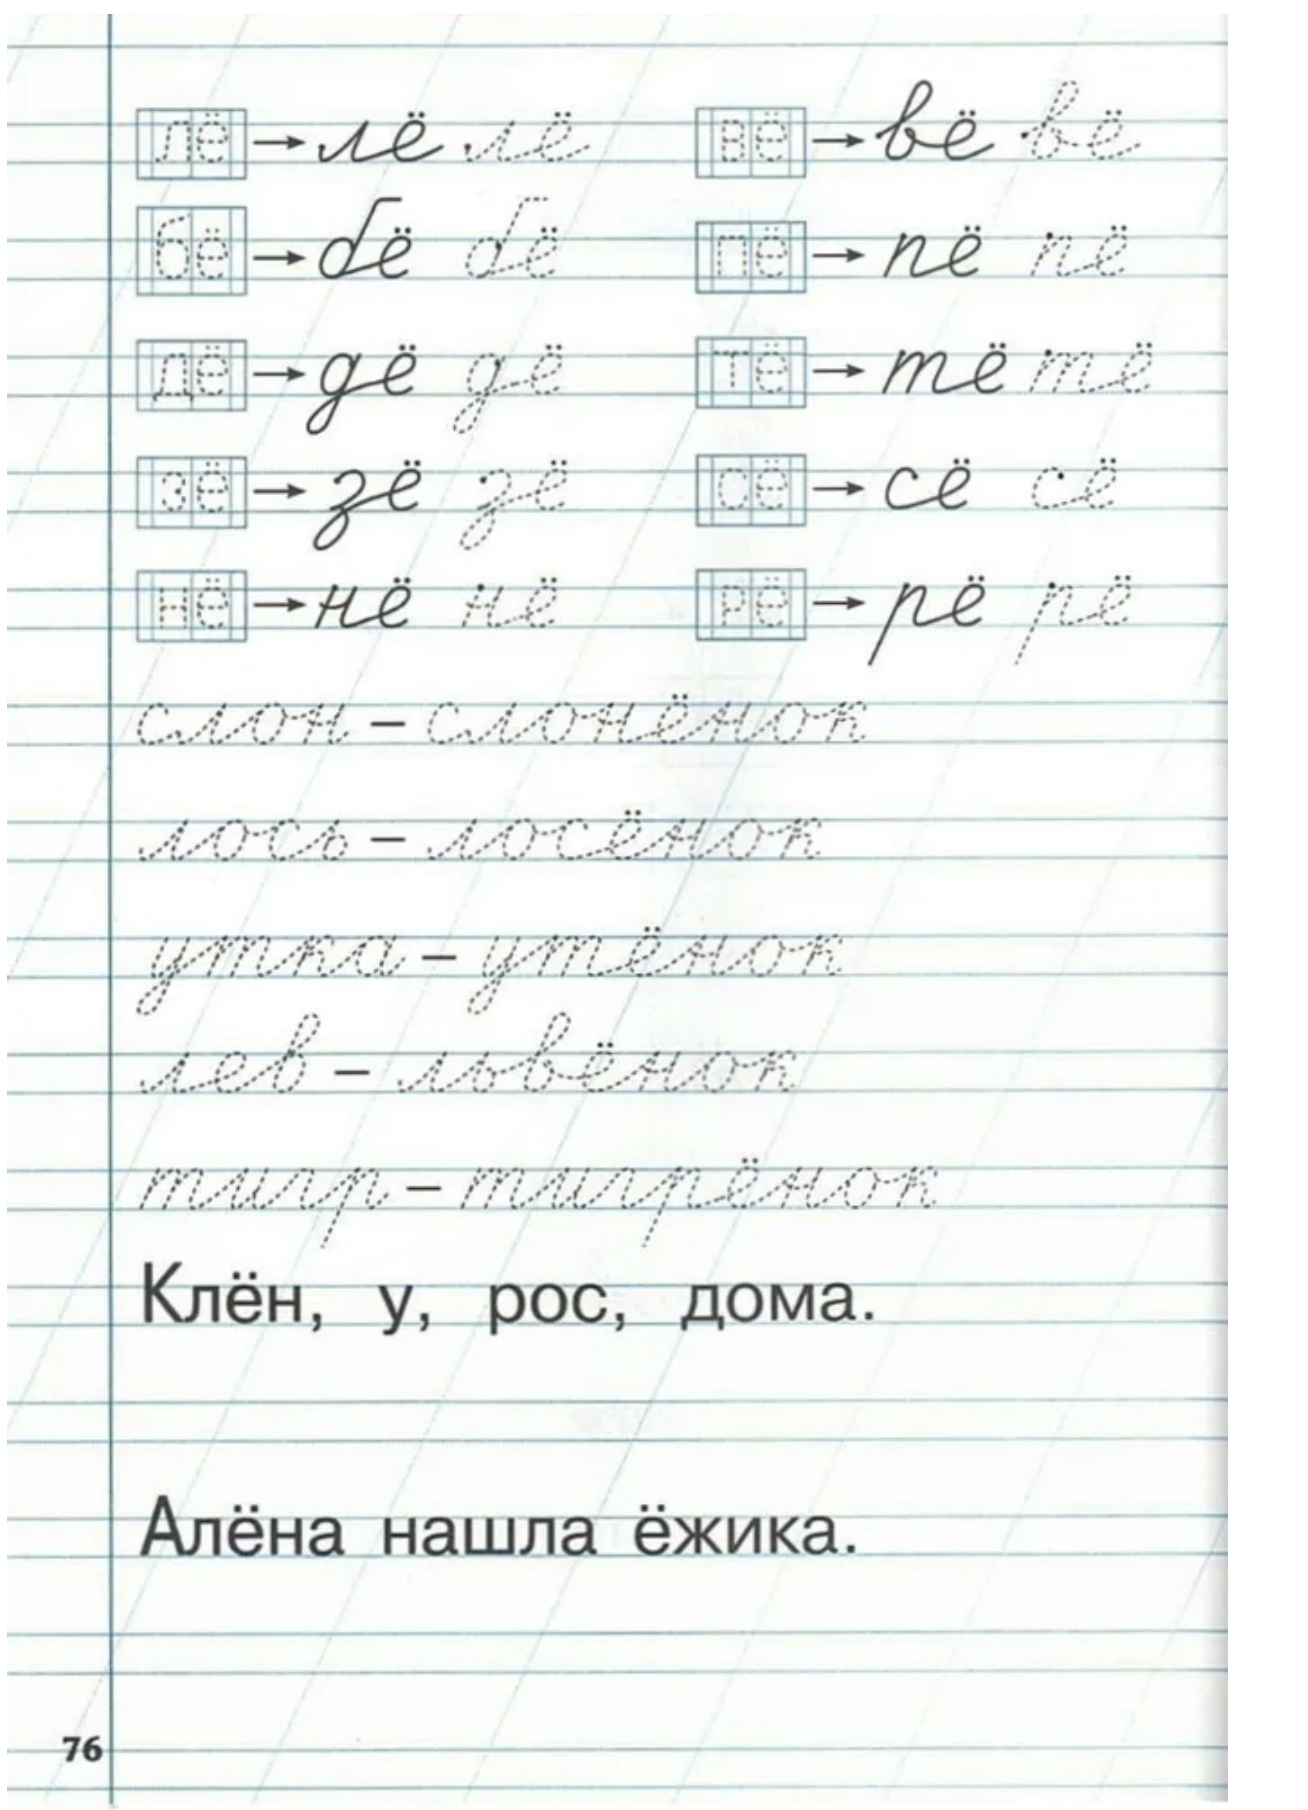 лё → лё лё вё → вё вё
бё → бё бё пё → пё пё
дё → дё дё тё → тё тё
зё → зё зё сё → сё сё
нё → нё нё рё → рё рё
слон – слонёнок
лось – лосёнок
утка – утёнок
лев – львёнок
тигр – тигрёнок
Клён, у, рос, дома.
Алёна нашла ёжика.
76